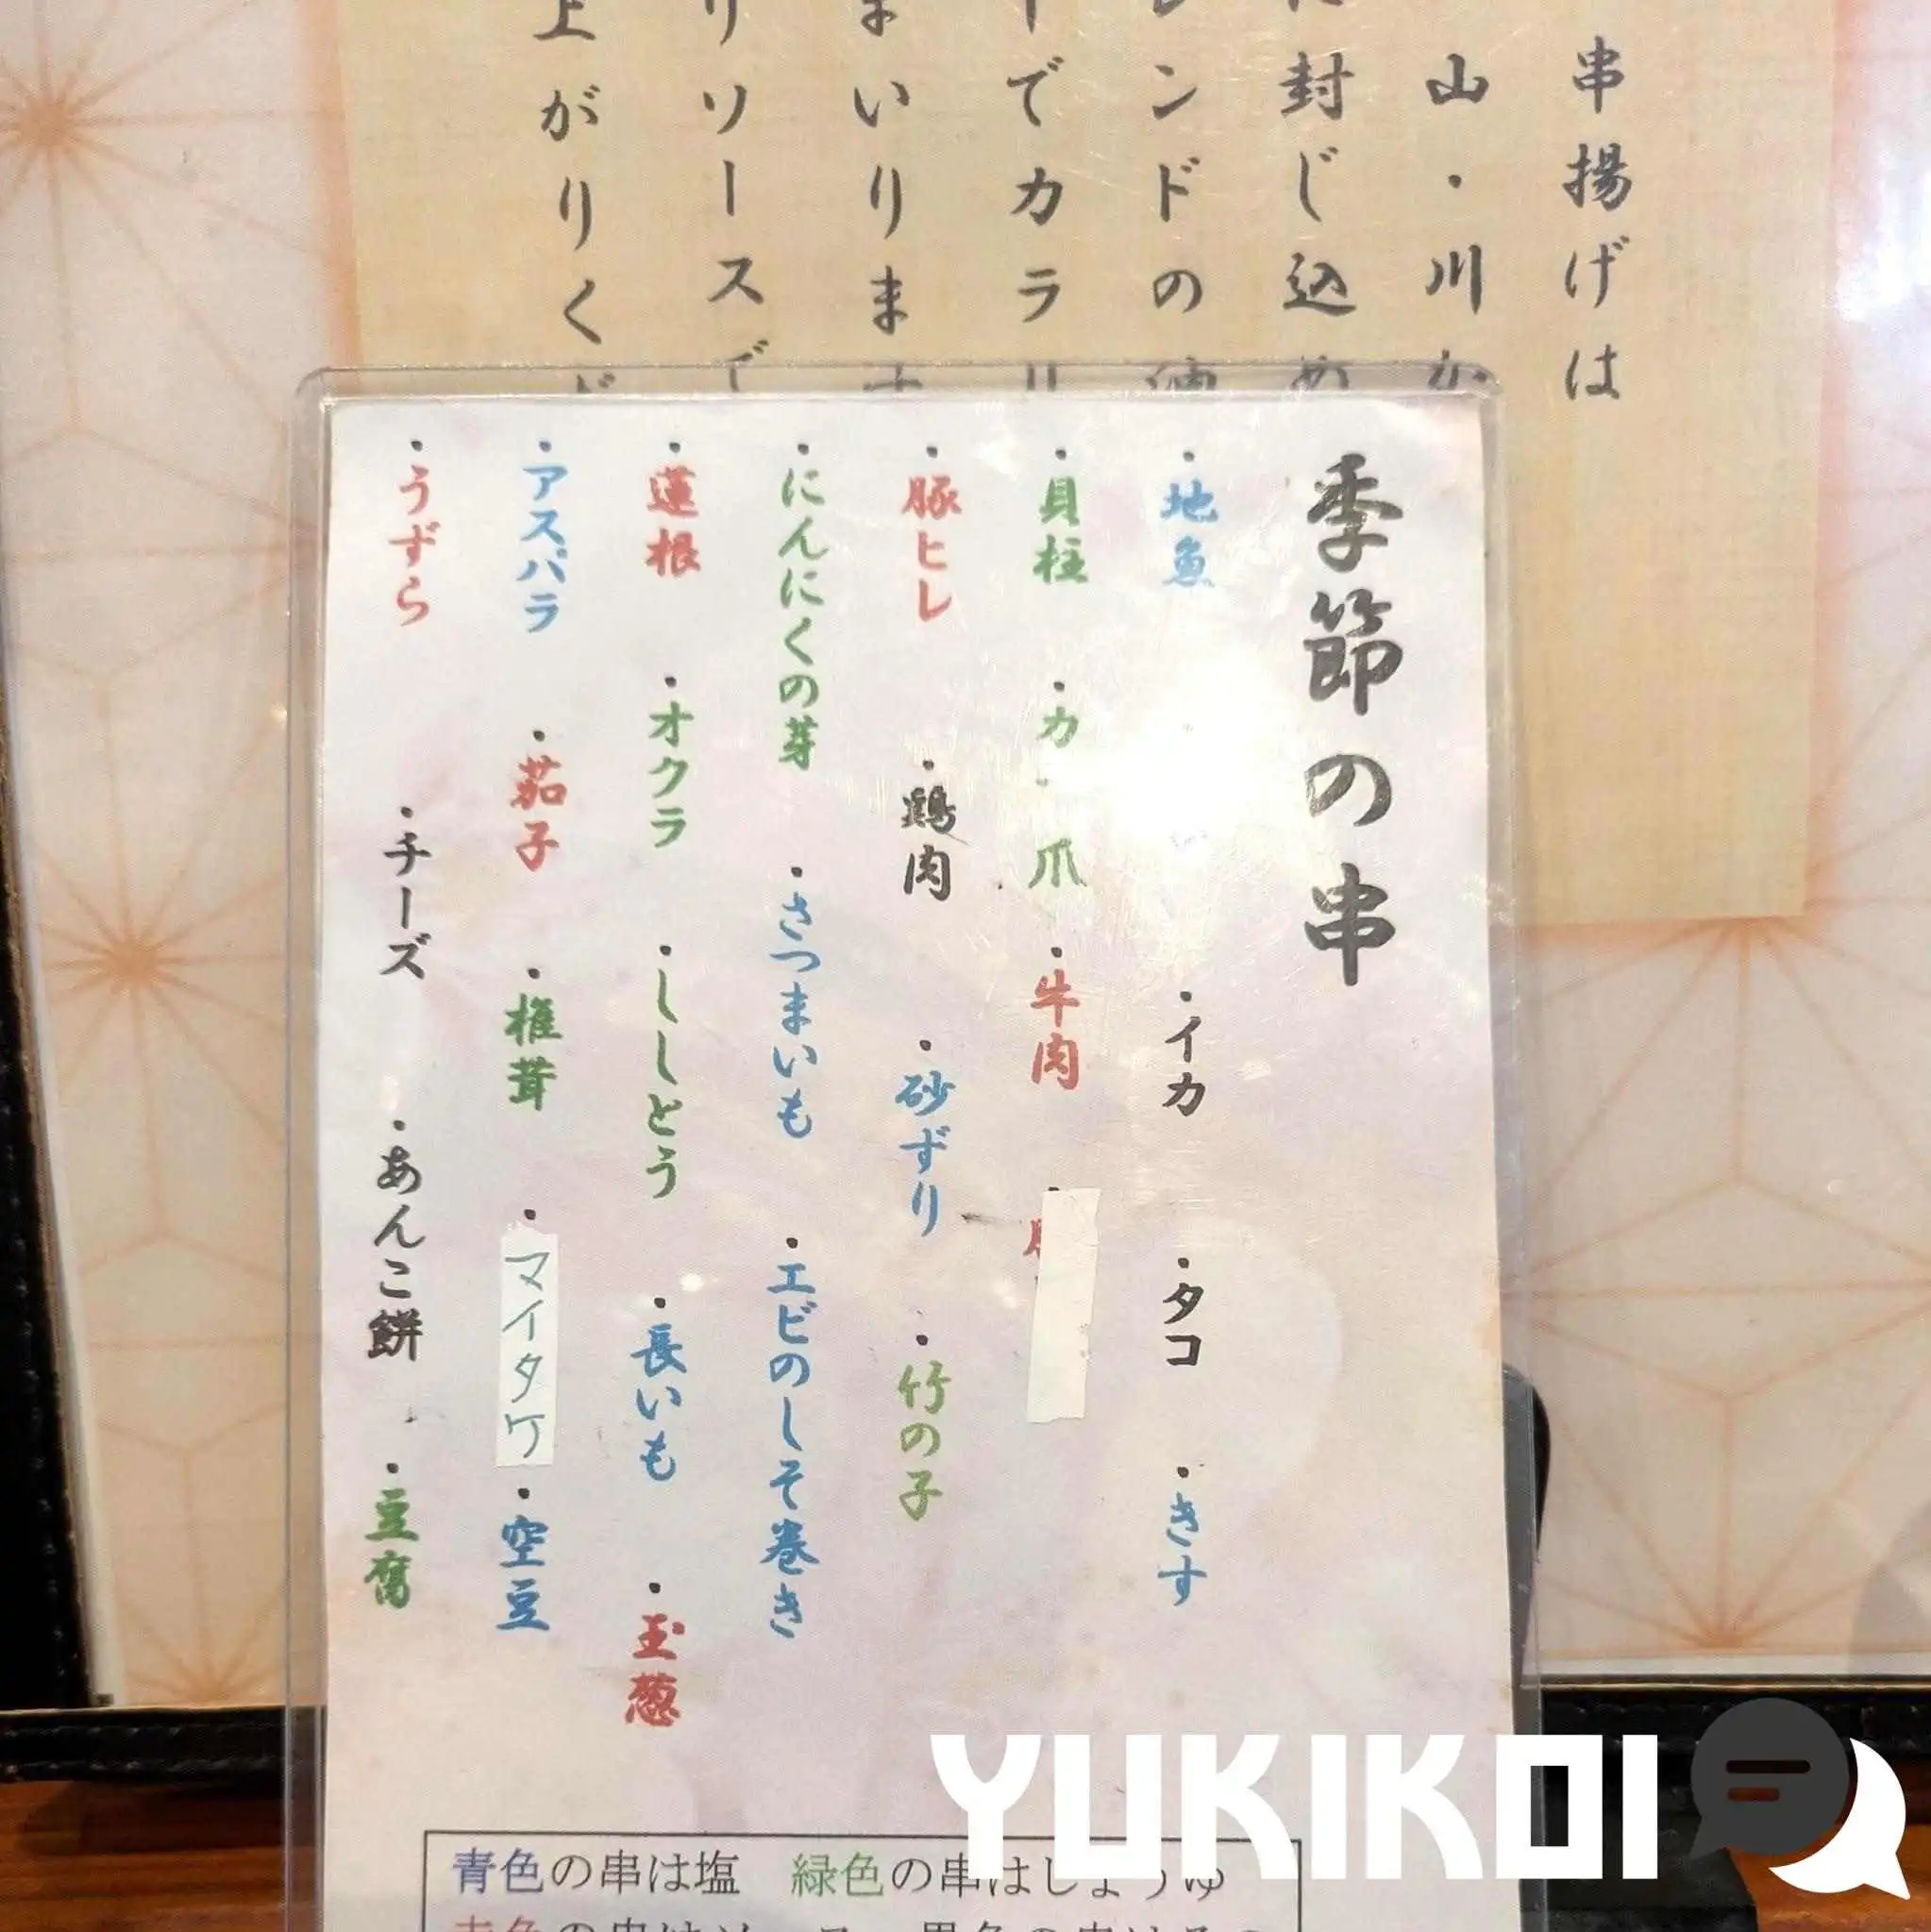 串揚げは
山・川
封じ込め
ンドの
ーでカラリ
まいります
りソースで
上がりくだ
季節の串
・地魚
・イカ ・タコ ・きす
・貝柱 ・カ 爪 ・牛肉
・豚ヒレ ・鶏肉 ・砂ずり ・竹の子
・にんにくの芽 ・さつまいも ・エビのしそ巻き
・蓮根 ・オクラ ・ししとう ・長いも ・玉葱
・アスパラ ・茄子 ・椎茸 ・マイタケ ・空豆
・うずら ・チーズ ・あんこ餅 ・豆腐
青色の串は塩 緑色の串はしょうゆ
YUKIKOI